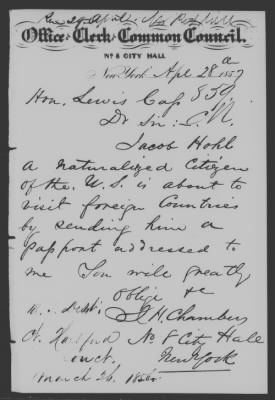 Office of Clerk of Common Council.
No 8 CITY HALL
New York Apl 28 1857
Hon. Lewis Cass
Dr Sir:
Jacob Hohl
a naturalized Citizen
of the U.S. is about to
visit foreign Countries
by sending him a
passport addressed to
me You will greatly
oblige &c
J. H. Chambers
No 8 City Hall
New York
Ct. Hartford
March 26. 1856